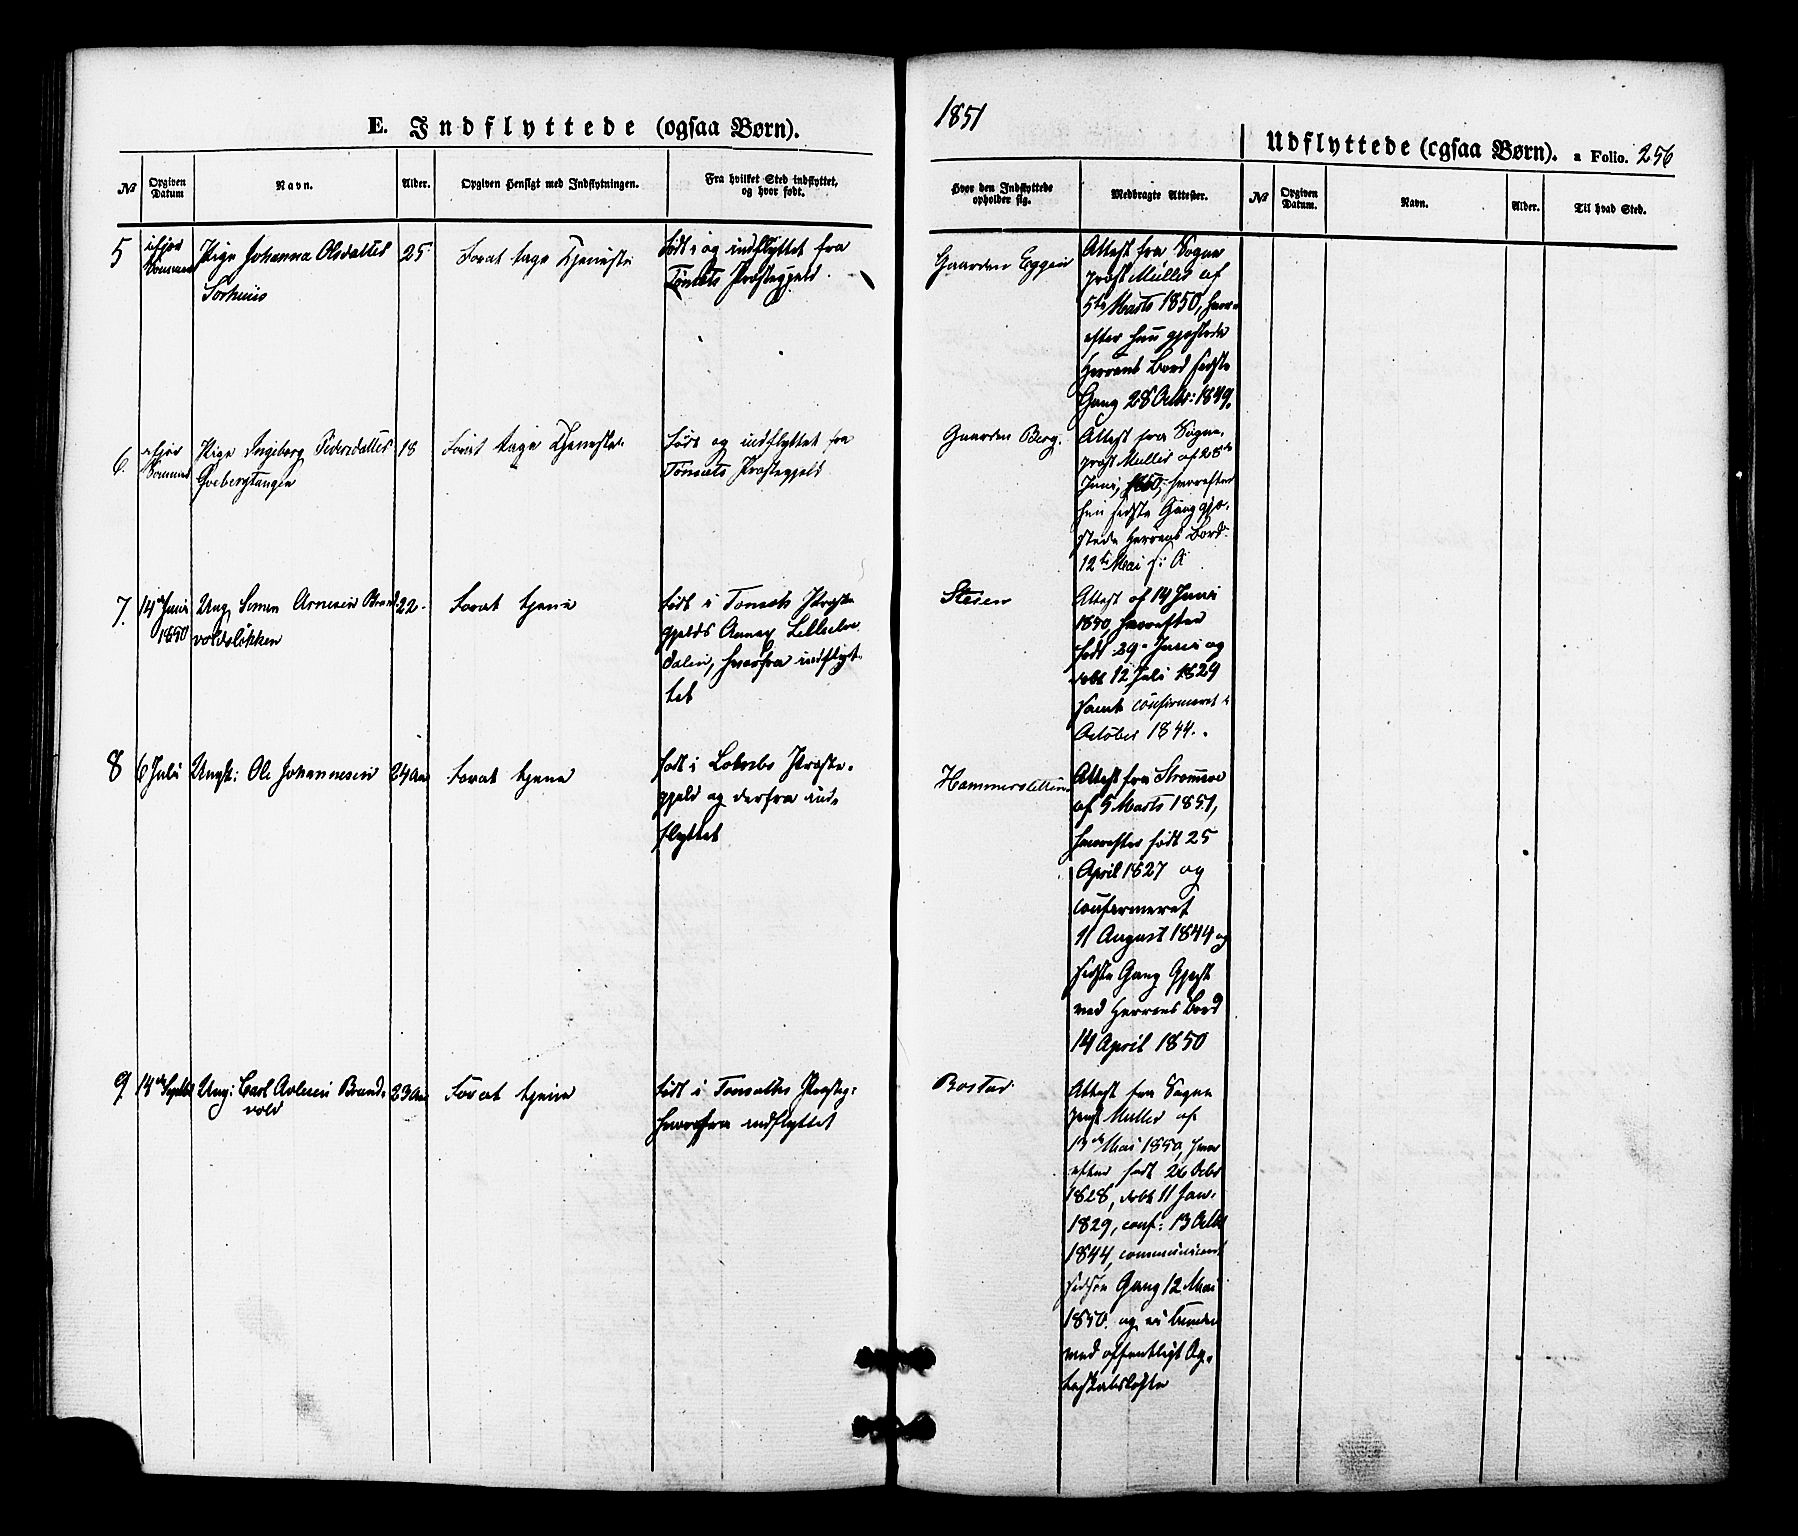 E. Indflyttede (ogsaa Børn).
1851
Udflyttede (ogsaa Børn). a Folio. 256
No
Opgiven
Datum
Navn.
Alder.
Opgiven Hensigt med Indflytningen.
Fra hvilket Sted indflyttet,
og hvor født.
Hvor den Indflyttede
opholder sig.
Medbragte Attester.
No
Opgiven
Datum.
Navn.
Alder.
Til hvad Sted.
5
ifjor
Sommer
Pige Johanna Olsdatter
25
For at tage Tjeneste
født i og indflyttet fra
Tønsets Præstegjeld.
Gaarden Eggen
Attest fra Sogne
præst Müller af
5te Marts 1850, hvor-
efter hun gjæstede
Herrens Bord sidste
Gang 28 Octbr: 1849.
6.
ifjor
Sommer
Pige Ingeborg Pedersdatter
18
For at tage Tjeneste.
født og indflyttet fra
Tønsets Præstegjeld
Gaarden Berg.
Attest fra Sogne-
præst Müller af 28de
Juni, 1850, hvorefter
hun sidste Gang gjæ-
stede Herrens Bord
12te Mai s: A
7.
14de Juni
1850
Ung. Simen Arnesen Brand
voldsløkken
22
For at tjene
født i Tønsets Præste
gjelds Annex Lilleelve
dalen, hvorfra indflyt-
tet
Steien
Attest af 14 Juni
1850, hvorefter
født 29 Juni og
døbt 12 Juli 1829
samt confirmeret i
October 1844.
8
6 Juli
Ungk: Ole Johannesen
24 Aar
For at tjene
født i Præste-
gjeld og derfra ind-
flyttet
Attest fra Strømsøe
af 5 Marts 1851,
hvorefter født 25
April 1827 og
confirmeret
11 August 1844 og
sidste Gang Gjest
ved Herrens Bord
14 April 1850
9
14de Septbr
Ung: Carl Brand-
vold
23 Aar
For at tjene
født i Tønsets Præsteg:
hvorfra indflyttet
Attest fra Sogne
præst Müller af
13de Mai 1850, hvor
efter født 26 Octbr
1828, døbt 11 Jan.
1829, conf: 13 Octbr
1844, communiceret
sidste Gang 12 Mai
1850 og er bunden
ved offentligt Æg-
teskabsløfte